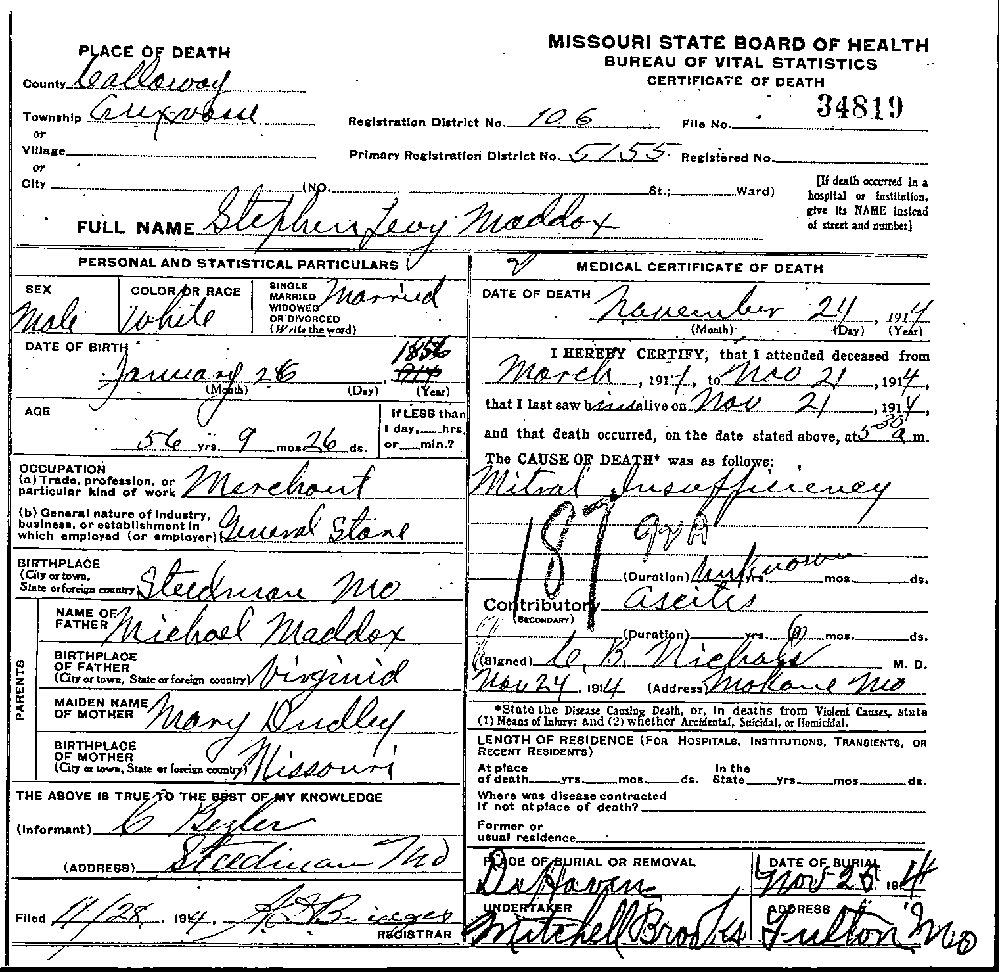 MISSOURI STATE BOARD OF HEALTH
BUREAU OF VITAL STATISTICS
CERTIFICATE OF DEATH
PLACE OF DEATH
County Callaway
Township Auxvasse
or
Village
or
City (NO. St.; Ward)
Registration District No. 106 File No. 34819
Primary Registration District No. 5155 Registered No.
[If death occurred in a
hospital or institution,
give its NAME instead
of street and number]
FULL NAME Stephen Levy Maddox
PERSONAL AND STATISTICAL PARTICULARS
SEX
Male
COLOR OR RACE
White
SINGLE
MARRIED
WIDOWED
OR DIVORCED
(Write the word)
Married
DATE OF BIRTH
January 26, 1856
(Month) (Day) (Year)
AGE
56 yrs. 9 mos. 26 ds.
If LESS than
1 day, hrs.
or min.?
OCCUPATION
(a) Trade, profession, or
particular kind of work Merchant
(b) General nature of industry,
business, or establishment in
which employed (or employer) General Store
BIRTHPLACE
(City or town,
State or foreign country) Steedman Mo
PARENTS
NAME OF
FATHER Michael Maddox
BIRTHPLACE
OF FATHER
(City or town, State or foreign country) Virginia
MAIDEN NAME
OF MOTHER Mary Dudley
BIRTHPLACE
OF MOTHER
(City or town, State or foreign country) Missouri
THE ABOVE IS TRUE TO THE BEST OF MY KNOWLEDGE
(Informant) C
(ADDRESS) Steedman Mo
Filed 11/28, 1914.
REGISTRAR
MEDICAL CERTIFICATE OF DEATH
DATE OF DEATH
November 24, 1914
(Month) (Day) (Year)
I HEREBY CERTIFY, that I attended deceased from
March, 1914, to Nov 21, 1914,
that I last saw him alive on Nov 21, 1914,
and that death occurred, on the date stated above, at 5 30 a m.
The CAUSE OF DEATH* was as follows:
Mitral Insufficiency
187
(Duration) unknown yrs. mos. ds.
Contributory Ascitis
(SECONDARY)
(Duration) yrs. 6 mos. ds.
(Signed) C. B. Nichols M. D.
Nov 24, 1914 (Address) Mokane Mo
*State the Disease Causing Death, or, in deaths from Violent Causes, state
(1) Means of Injury; and (2) whether Accidental, Suicidal, or Homicidal.
LENGTH OF RESIDENCE (FOR HOSPITALS, INSTITUTIONS, TRANSIENTS, OR
RECENT RESIDENTS)
At place In the
of death yrs. mos. ds. State yrs. mos. ds.
Where was disease contracted
If not at place of death?
Former or
usual residence
PLACE OF BURIAL OR REMOVAL
DeHaven
DATE OF BURIAL
Nov 25 1914
UNDERTAKER
Mitchell Brooks
ADDRESS
Fulton Mo